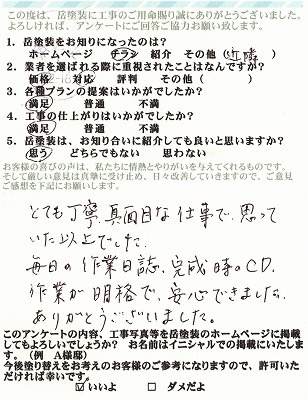 この度は、岳塗装に工事のご用命賜り誠にありがとうございました。
よろしければ、アンケートにご回答ご協力お願い致します。
1. 岳塗装をお知りになったのは?
ホームページ チラシ 紹介 その他(近隣)
2. 業者を選ばれる際に重視されたことはなんですか?
価格 対応 評判 その他( )
3. 各種プランの提案はいかがでしたか?
満足 普通 不満
4. 工事の仕上がりはいかがでしたか?
満足 普通 不満
5. 岳塗装は、お知り合いに紹介しても良いと思いますか?
思う どちらでもない 思わない
お客様の喜びの声は、私たちに情熱とやりがいを与えてくれるものです。
そして厳しい意見は真摯に受け止め、日々改善していきますので、ご意見
ご感想を下記にお願いします。
とても丁寧、真面目な仕事で、思って
いた以上でした。
毎日の作業日誌、完成時のCD、
作業が明確で、安心できました。
ありがとうございました。
このアンケートの内容、工事写真等を岳塗装のホームページに掲載
してもよろしいでしょうか? お名前はイニシャルでの掲載にいたしま
す。(例 A様邸)
今後塗り替えをお考えのお客様のご参考になりますので、許可いた
だければ幸いです。
☑いいよ □ ダメだよ